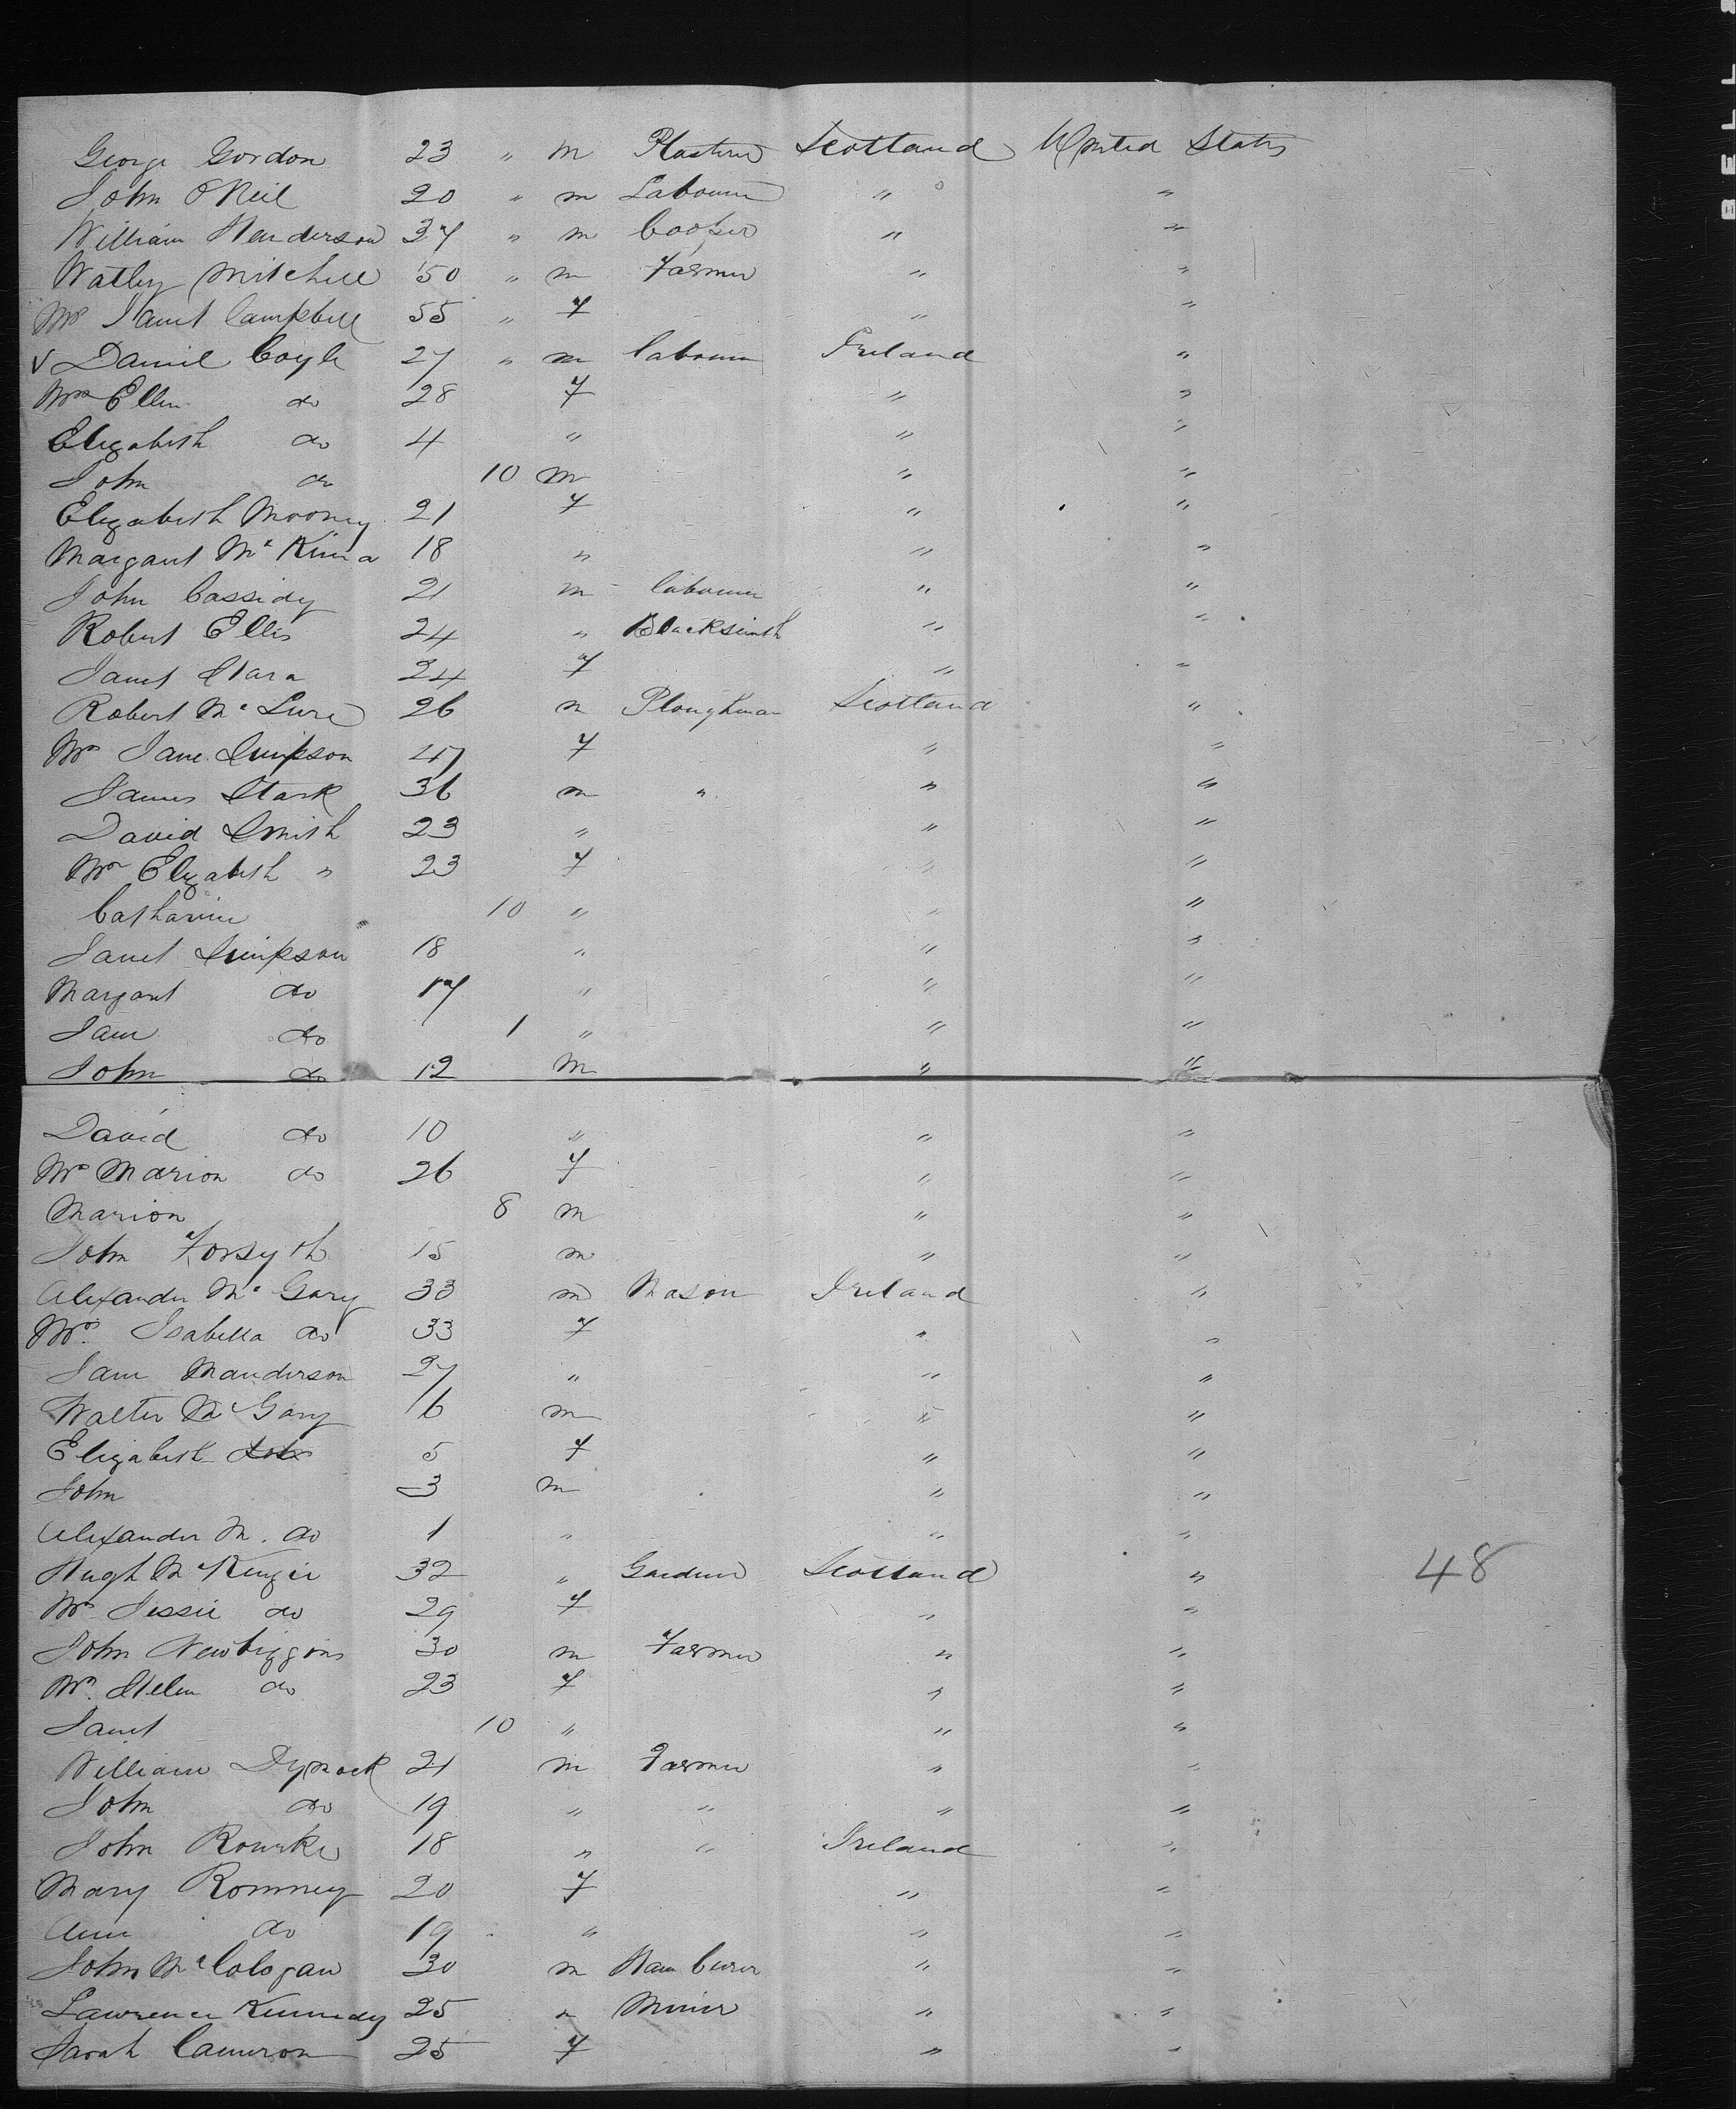 George Gordon 23 " m Plasterer Scotland United States
John O'Neil 20 " m Labourer " "
William Henderson 37 " m Cooper " "
Watley Mitchell 50 " m Farmer " "
Mrs Janet Campbell 55 " f " "
Daniel Coyle 27 " m labourer Ireland "
Mrs Ellen do 28 f " "
Elizabeth do 4 " " "
John do 10 m " "
Elizabeth Mooney 21 f " "
Margaret McKinna 18 " " "
John Cassidy 21 m labourer " "
Robert Ellis 24 " Blacksmith " "
Janet 24 f " "
Robert McLure 26 m Ploughman Scotland "
Mrs Jane Simpson 47 f " "
James Stark 36 m " " "
David Smith 23 " " "
Mrs Elizabeth " 23 f " "
Catharine 10 " " "
Janet Simpson 18 " " "
Margaret do 17 " " "
Jane do 1 " " "
John do 12 m " "
David do 10 " " "
Mrs Marion do 26 f " "
Marion 8 m " "
John Forsyth 15 m " "
Alexander McGary 33 m Mason Ireland "
Mrs Isabella do 33 f " "
Jane Manderson 27 " " "
Walter McGary 6 m " "
Elizabeth 5 f " "
John 3 m " "
Alexander M. do 1 " " "
Hugh McKenzie 32 " Gardner Scotland " 48
Mrs Jessie do 29 f " "
John Newbiggins 30 m Farmer " "
Mrs Helen do 23 f " "
Janet 10 " " "
William Dymock 21 m Farmer " "
John do 19 " " " "
John Rourke 18 " " Ireland "
Mary Romney 20 f " "
Ann do 19 " " "
John McCologan 30 m Ham Curer " "
Lawrence Kennedy 25 " Miner " "
Sarah Cameron 25 f " "